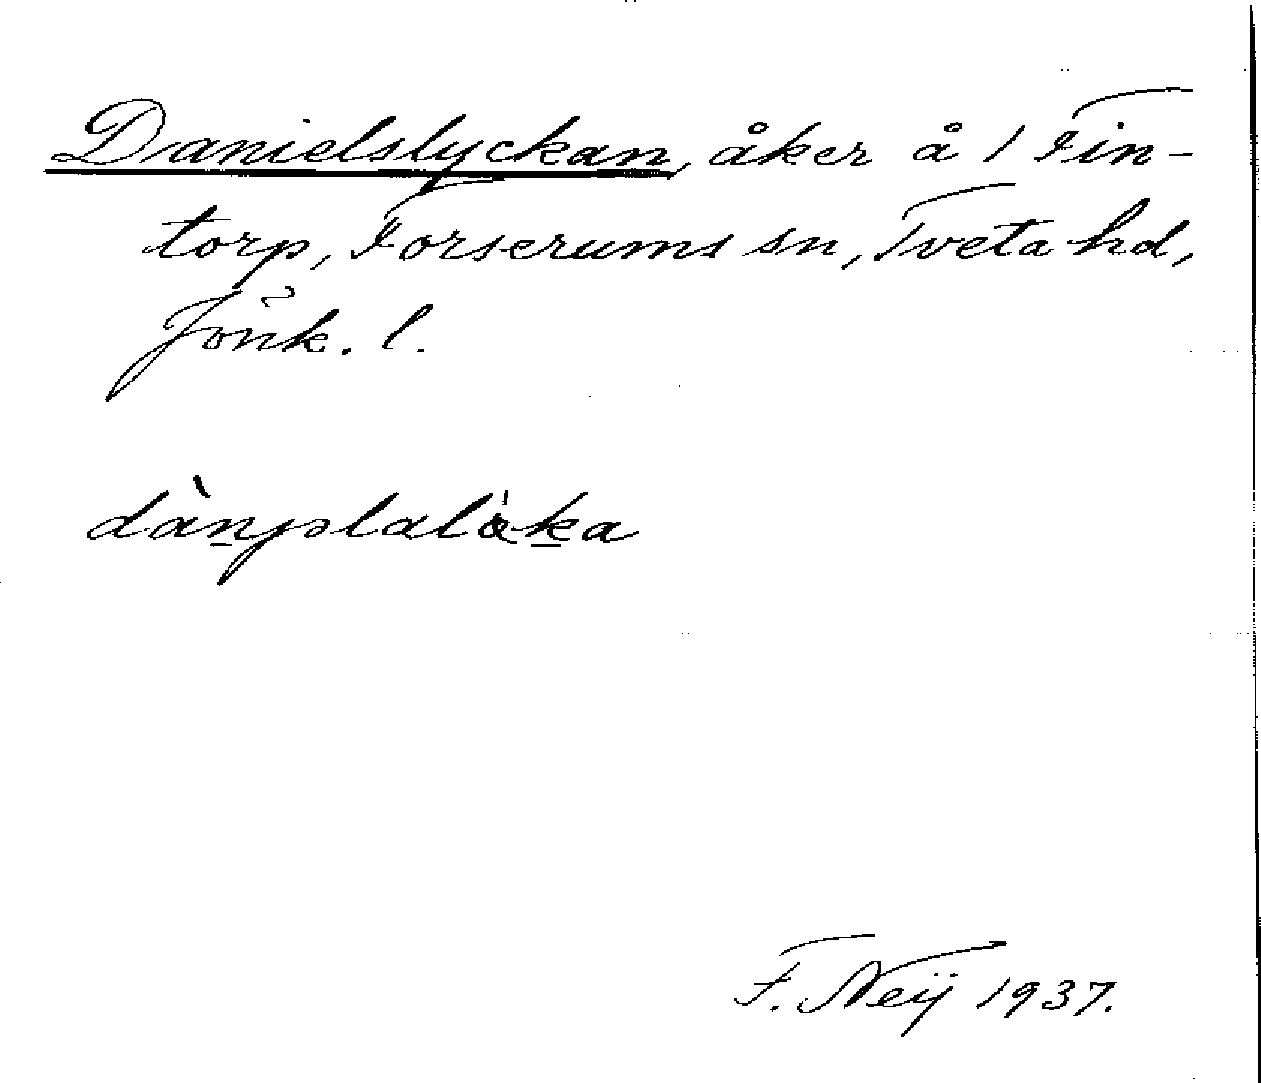 Danielslyckan, åker å 1 Fin-
torp, Forserums sn, Tveta hd,
Jönk. l.
F. Neij 1937.